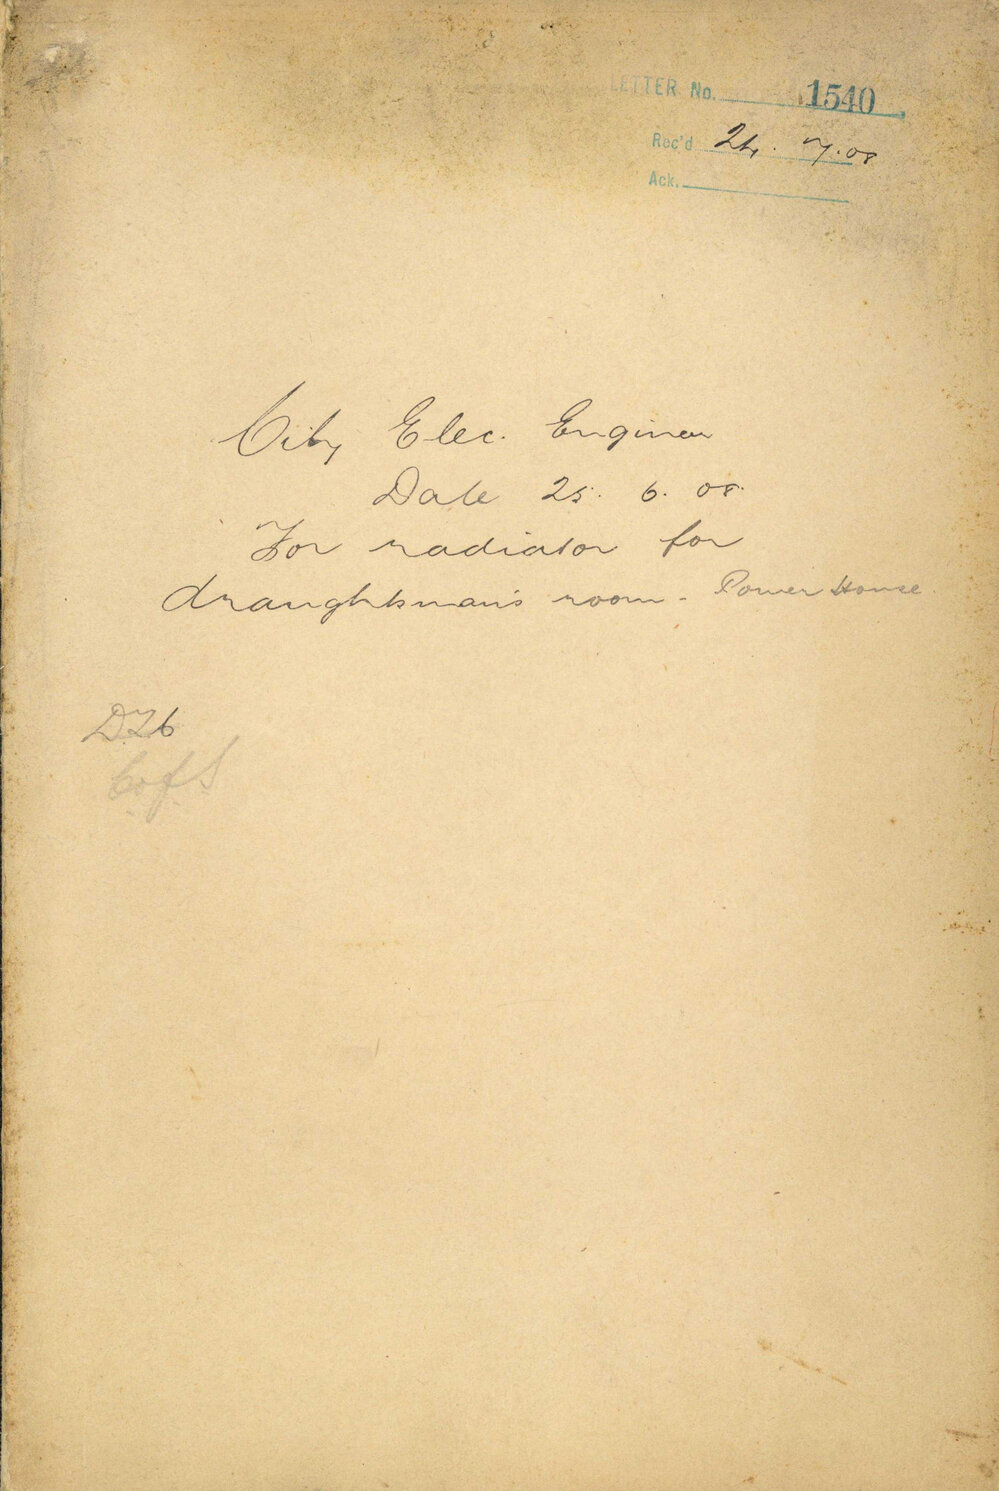 LETTER No. 1540
Rec'd 24. 7. 08
Ack.
City Elec. Engineer
Date 25. 6. 08.
For radiator for
draughtsman's room - Power House
DZ6
C of S